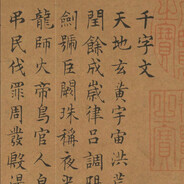 千字文
天地玄黃宇宙洪荒
閏餘成歲律呂調陽
劍號巨闕珠稱夜光
龍師火帝鳥官人皇
弔民伐罪周發殷湯